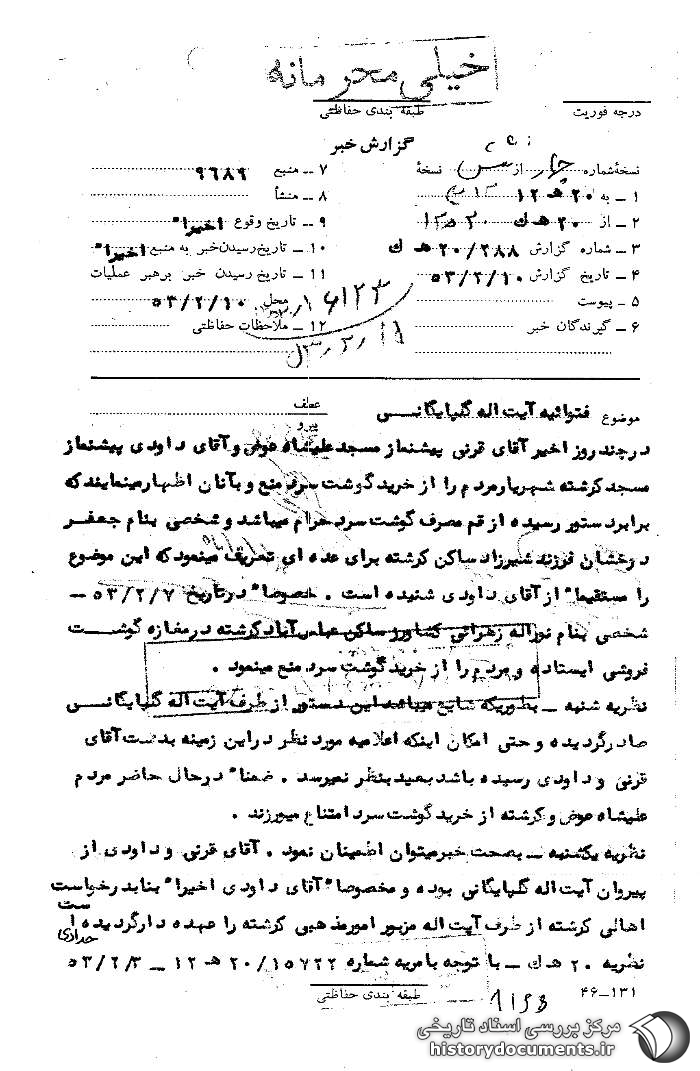 خیلی محرمانه
درجه فوریت
طبقه بندی حفاظتی
گزارش خبر
نسخه شماره چهار از نسخهٔ
۱ ــ به ۲۰ هـ ۱۲
۲ ــ از ۲۰ هـ ك
۳ ــ شماره گزارش ۲۰/۲۸۸ هـ ك
۴ ــ تاریخ گزارش ۵۳/۲/۱۰
۵ ــ پیوست
۶ ــ گیرندگان خبر
۷ ــ منبع ۹۶۸۹
۸ ــ منشأ
۹ ــ تاریخ وقوع اخیرا"
۱۰ ــ تاریخ رسیدن خبر به منبع اخیرا"
۱۱ ــ تاریخ رسیدن خبر برهبر عملیات
محل ۵۳/۲/۱۰
۱۲ ــ ملاحظات حفاظتی
موضوع فتوائیه آیت اله گلپایگانی
عطف
پیرو
در چند روز اخیر آقای قرنی پیشنماز مسجد علیشاه عوض و آقای داودی پیشنماز
مسجد کرشته شهریار مردم را از خرید گوشت سرد منع و بآنان اظهار مینمایند که
برابر دستور رسیده از قم مصرف گوشت سرد حرام میباشد و شخصی بنام جعفر
درخشان فرزند شیرزاد ساکن کرشته برای عده ای تعریف مینمود که این موضوع
را مستقیما" از آقای داودی شنیده است . خصوصا" در تاریخ ۵۳/۲/۷ ــ
شخصی بنام نوراله زهرائی کشاورز ساکن عباس آباد کرشته در مغازه گوشت
فروشی ایستاده و مردم را از خرید گوشت سرد منع مینمود .
نظریه شنبه ــ بطوریکه شایع میباشد این دستور از طرف آیت اله گلپایگانی
صادر گردیده و حتی امکان اینکه اعلامیه مورد نظر در این زمینه بدست آقای
قرنی و داودی رسیده باشد بعید بنظر نمیرسد . ضمنا" در حال حاضر مردم
علیشاه عوض و کرشته از خرید گوشت سرد امتناع میورزند .
نظریه یکشنبه ــ بصحت خبر میتوان اطمینان نمود . آقای قرنی و داودی از
پیروان آیت اله گلپایگانی بوده و مخصوصا" آقای داودی اخیرا" بنابدرخواست
اهالی کرشته از طرف آیت اله مزبور امور مذهبی کرشته را عهده دار گردیده است
حدادی
نظریه ۲۰ هـ ك ــ با توجه بامریه شماره ۲۰/۱۵۷۲۲ هـ ۱۲ ــ ۵۳/۲/۳
۴۶-۱۳۱
طبقه بندی حفاظتی
مرکز بررسی اسناد تاریخی
historydocuments.ir